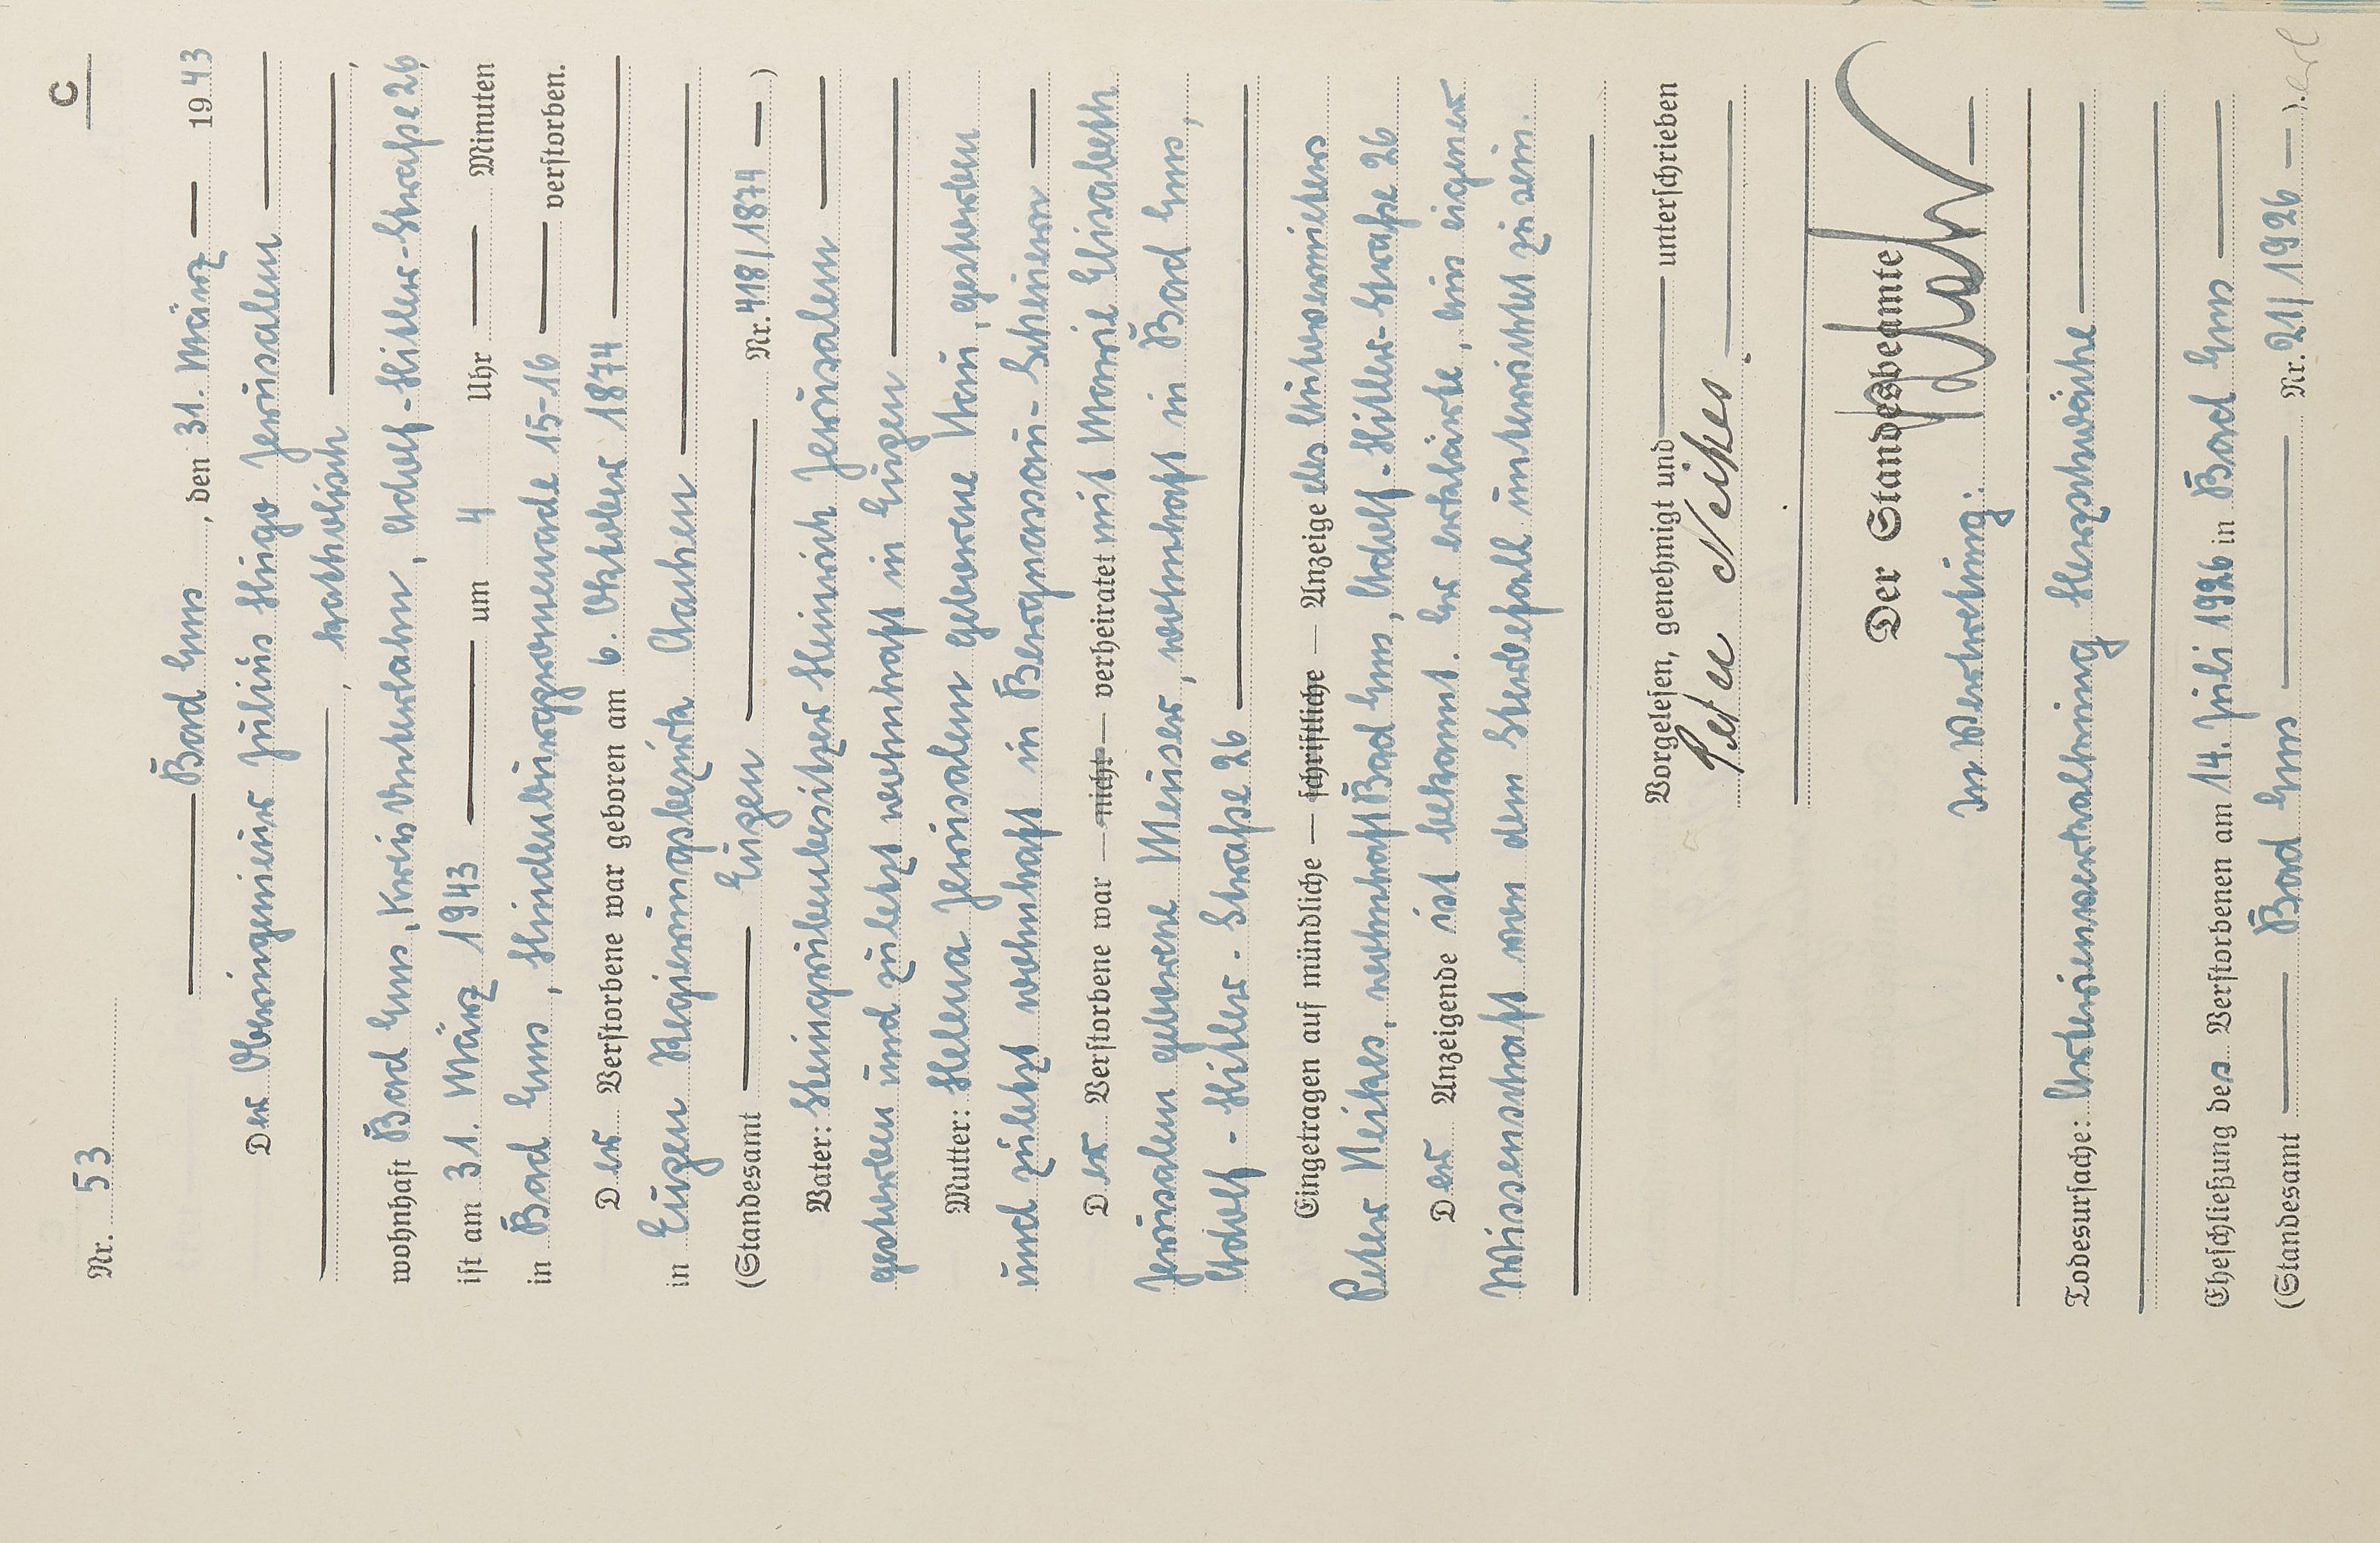 C
Nr. 53
Bad Ems, den 31. März 1943
Der Oberingenieur Julius Hugo Jerusalem
, katholisch,
wohnhaft Bad Ems, Kreis Unterlahn, Adolf-Hitler-Straße 26,
ist am 31. März 1943 um 4 Uhr Minuten
in Bad Ems, Hindenburgpromenade 15-16 verstorben.
Der Verstorbene war geboren am 6. Oktober 1874
in Eupen Regierungsbezirk Aachen
(Standesamt Eupen Nr. 418/1874)
Vater: Steingrubenbesitzer Heinrich Jerusalem
gestorben und zuletzt wohnhaft in Eupen
Mutter: Helena Jerusalem geborene Nau, gestorben
und zuletzt wohnhaft in Bergnassau-Scheuern
Der Verstorbene war — nicht — verheiratet mit Marie Elisabeth
Jerusalem geborene Meiser, wohnhaft in Bad Ems,
Adolf-Hitler-Straße 26
Eingetragen auf mündliche — schriftliche — Anzeige des
Peter Neikes, wohnhaft Bad Ems, Adolf-Hitler-Straße 26
Der Anzeigende ist bekannt. Er erklärte, aus eigener
Wissenschaft von dem Sterbefall unterrichtet zu sein.
Vorgelesen, genehmigt und unterschrieben
Peter Neikes
Der Standesbeamte
In Vertretung:
Todesursache: Arterienverkalkung Herzschwäche
Eheschließung des Verstorbenen am 14. Juli 1926 in Bad Ems
(Standesamt Bad Ems Nr. 21/1926).